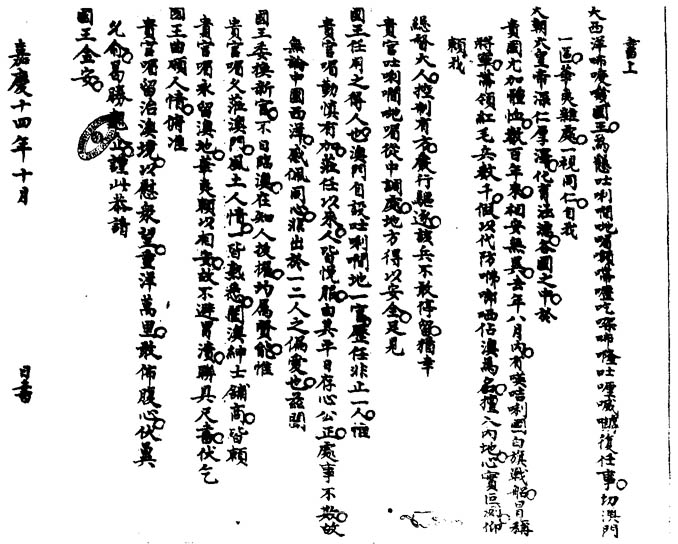 書上
大西洋咘唵翁國王為懇吐唎㗴咃嗗嘚嚦吃哚咘隆吐喱嘁嚧復任事切澳門
一區華夷雜處一視同仁自我
大朝大皇帝深仁厚澤化育法滂各國之中於
貴國尤加體恤數百年來相安無異去年八月內有𠸄咭唎國白旗戰船冒稱
將軍帶領紅毛兵數千假以代防咈啷哂佔澳為名擅入內地心實叵測仰
賴我
總督大人控制有方嚴行驅逐該兵不敢停留猶幸
貴官吐唎㗴咃嗗從中調處地方得以安全足見
國王任用之得人也澳門自設吐唎㗴地一官歷任非止一人惟
貴官嗗勤慎有加蒞任以來人皆悅服由其平日存心公正處事不欺故
無論中國西洋感佩同心非出於一二人之偏愛也茲聞
國王委換新官不日臨澳在知人後擢均屬賢能惟
貴官嗗久蒞澳門風土人情一皆熟悉闔澳紳士舖商皆賴
貴官嗗永留澳地華夷賴以相安故不避冒瀆聯具尺書伏乞
國王曲順人情俯准
貴官嗗留治澳境以慰眾望重洋萬里敢佈腹心伏冀
允俞曷勝翹企謹此恭請
國王金安
嘉慶十四年十月 日書